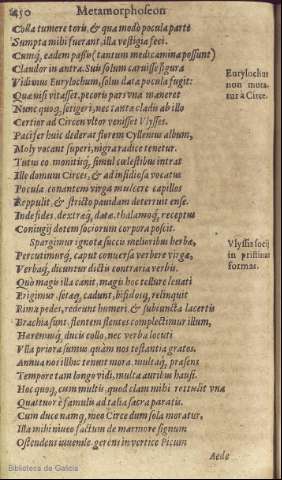 450 Metamorphoseon
Colla tumere toris, & qua modo pocula parte
Sumpta mihi fuerant, illa vestigia feci.
Cumq; eadem passis (tantum medicamina possunt)
Claudor in antra. Sui solum caruisse figura
Vidimus Eurylochum, solus data pocula fugit:
Quæ nisi vitasset, pecoris pars vna maneret
Nunc quoq; setigeri, nec tanta cladis ab illo
Certior ad Circen vltor venisset Vlysses.
Pacifer huic dederat florem Cyllenius album,
Moly vocant superi, nigra radice tenetur.
Tutus eo, monitisq; simul cælestibus intrat
Ille domum Circes, & ad insidiosa vocatus
Pocula, conantem virga mulcere capillos
Reppulit, & stricto pauidam deterruit ense.
Inde fides, dextræq; datæ. thalamoq; receptus
Coniugij dotem sociorum corpora poscit.
Spargimur ignotæ succis melioribus herbæ,
Percutimurq; caput conuersæ verbere virgæ,
Verbaq; dicuntur dictis contraria verbis.
Quo magis illa canit, magis hoc tellure leuati
Erigimur, setæq; cadunt, bifidosq; relinquit
Rima pedes, redeunt humeri, & subiuncta lacertis
Brachia sunt. flentem flentes complectimur illum,
Hæremusq; ducis collo, nec verba locuti
Vlla priora sumus, quàm nos testantia gratos.
Annua nos illhic tenuit mora. multaq; præsens
Tempore tam longo vidi, multa auribus hausi.
Hoc quoq; cum multis, quod clam mihi rettulit vna
Quattuor è famulis ad talia sacra paratis.
Cum duce namq; meo Circe dum sola moratur,
Illa mihi niueo factum de marmore signum
Ostendens iuuenile, gerens in vertice Picum
Aede
Eurylochus
non muta-
tur à Circe.
Vlyssis socij
in pristinas
formas.
Biblioteca de Galicia